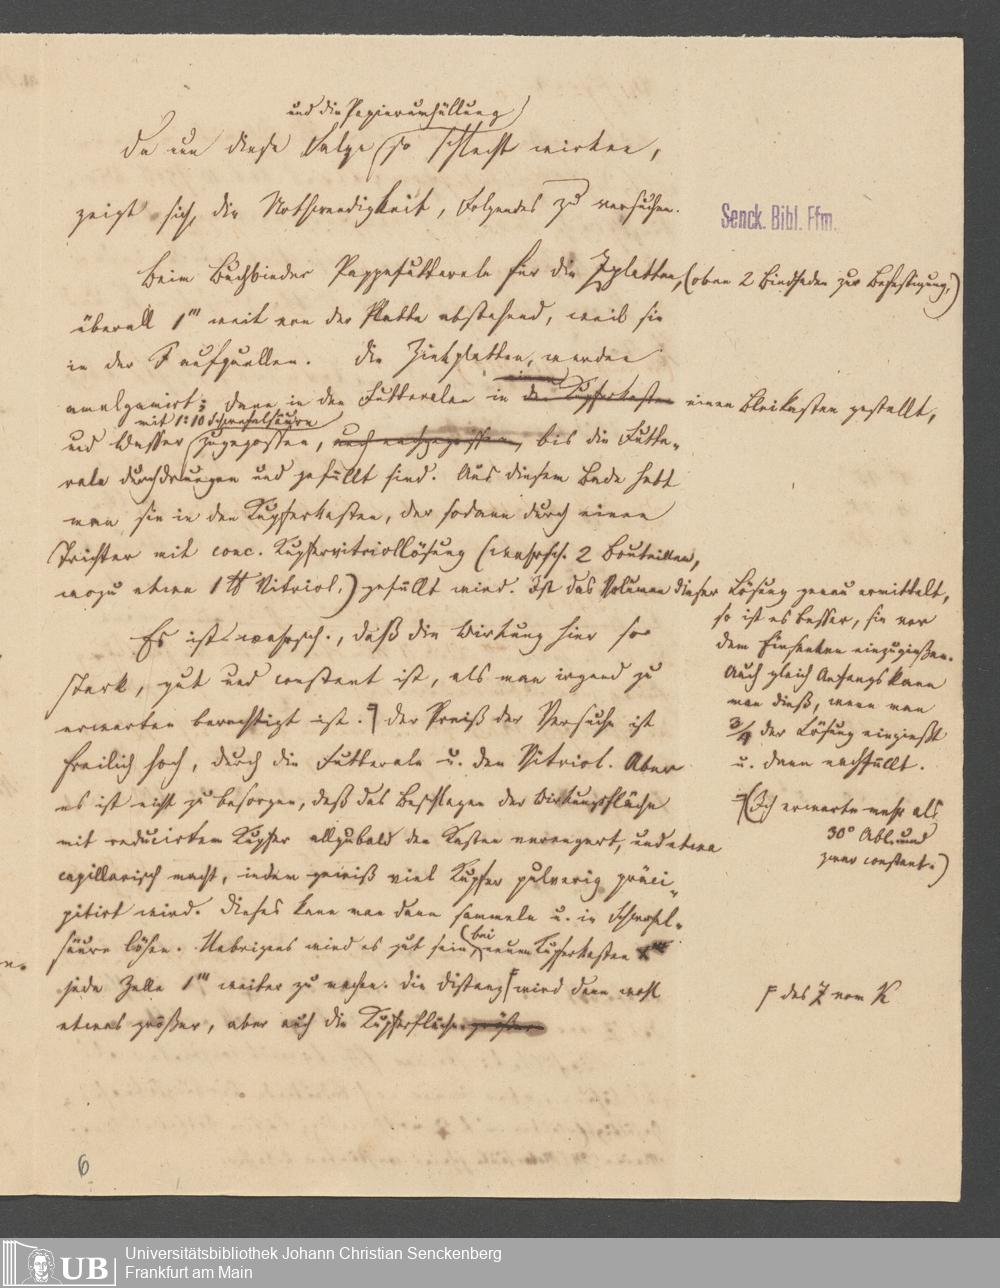 und die Papierumhüllung
Da nun diese Salze so schlecht wirken,
zeigt sich, die Nothwendigkeit, Folgendes zu versuchen.
Senck. Bibl. Ffm.
Beim Buchbinder Pappefutterale für die Zplatten, (oben 2 Bindfaden zur Befestigung,)
überall 1''' weit von der Platte abstehend, weil sie
in der F aufquellen. Die Zinkplatten, werden
amalgamirt; dann in den Futteralen in den Kupferkasten einen Bleikasten gestellt,
mit 1:10 Schwefelsäure
und Wasser zugegossen, und nachgegossen, bis die Futte-
rale durchdrungen und gefüllt sind. Aus diesem Bade hebt
man sie in den Kupferkasten, der sodann durch einen
Trichter mit conc. Kupfervitriollösung (wahrsch. 2 Bouteillen,
wozu etwa 1 ℔ Vitriol,) gefüllt wird. Ist das Volumen dieser Lösung genau ermittelt,
so ist es besser, sie vor
dem Einsenken einzugießen.
Auch gleich Anfangs kann
man dieß, wenn man
3/4 der Lösung eingießt
u. dann nachfüllt.
Es ist wahrsch., daß die Wirkung hier so
stark, gut und constant ist, als man irgend zu
erwarten berechtigt ist. Der Preiß der Versuche ist
freilich hoch, durch die Futterale u. den Vitriol. Aber
es ist nicht zu besorgen, daß das Beschlagen der Wirkungsfläche
mit reducirtem Kupfer allzubald den Kasten verengert, und etwa
capillarisch macht, indem gewiß viel Kupfer pulverig präci-
pitirt wird. Dieses kann man dann sammeln u. in Schwefel-
säure lösen. Uebrigens wird es gut sein, bei neuen Kupferkasten
jede Zelle 1''' weiter zu machen. Die Distanz wird dann wohl
etwas größer, aber auch die Kupferfläche größer
(Ich erwarte mehr als
30° Abl. und
zwar constant.)
des Z vom K
6
UB
Universitätsbibliothek Johann Christian Senckenberg
Frankfurt am Main